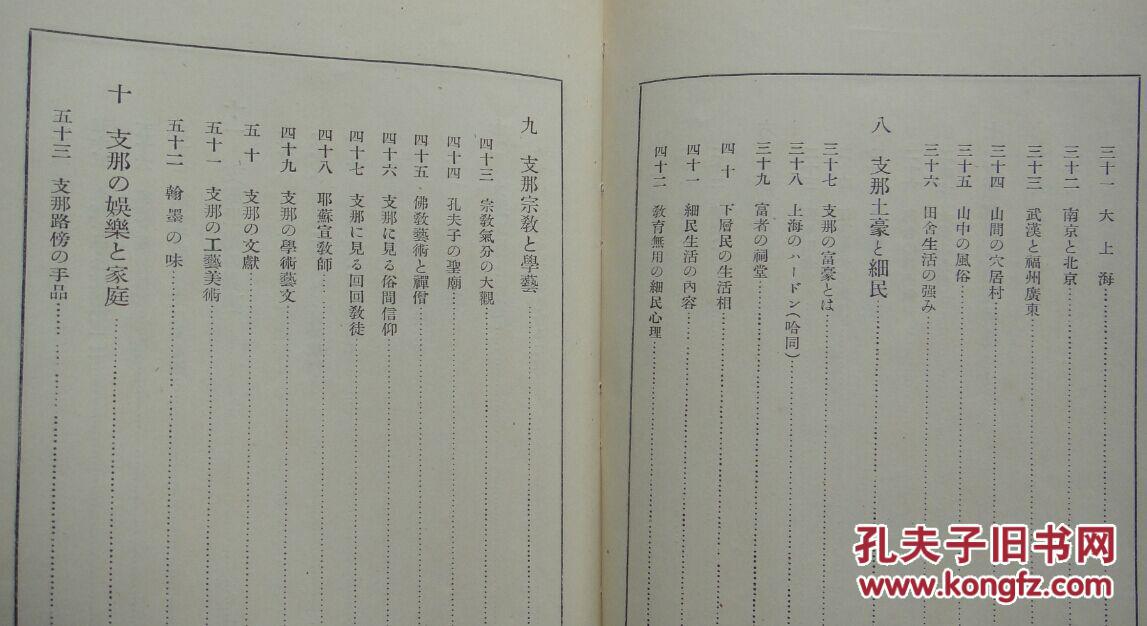 三十一 大上海
三十二 南京と北京
三十三 武漢と福州廣東
三十四 山間の穴居村
三十五 山中の風俗
三十六 田舍生活の强み
八 支那土豪と細民
三十七 支那の富豪とは
三十八 上海のハードン(哈同)
三十九 富者の祠堂
四十 下層民の生活相
四十一 細民生活の內容
四十二 敎育無用の細民心理
九 支那宗敎と學藝
四十三 宗敎氣分の大觀
四十四 孔夫子の聖廟
四十五 佛敎藝術と禪僧
四十六 支那に見る俗間信仰
四十七 支那に見る回回敎徒
四十八 耶蘇宣敎師
四十九 支那の學術藝文
五十 支那の文獻
五十一 支那の工藝美術
五十二 翰墨の味
十 支那の娛樂と家庭
五十三 支那路傍の手品
孔夫子旧书网
www.kongfz.com